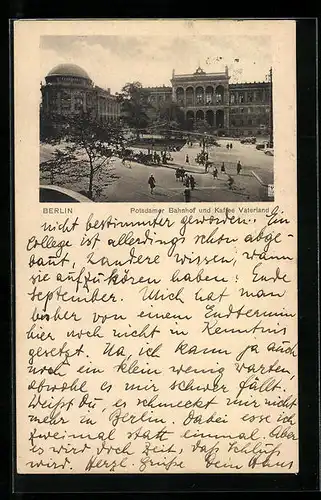 BERLIN
Potsdamer Bahnhof und Kaffee Vaterland
nicht bestimmter geworden. Ein
College ist allerdings schon abge-
baut, 2 andere wissen, wann
sie aufzuhören haben: Ende
September. Mich hat man
bisher von einem Endtermin
hier noch nicht in Kenntnis
gesetzt. Na, ich kann ja auch
noch ein klein wenig warten,
obwohl es mir schwer fällt.
Weißt Du, es schmeckt mir nicht
mehr in Berlin. Dabei esse ich
zweimal statt einmal. Aber
es wird doch Zeit, daß Schluß
wird. Herzl. Grüße Dein Hans